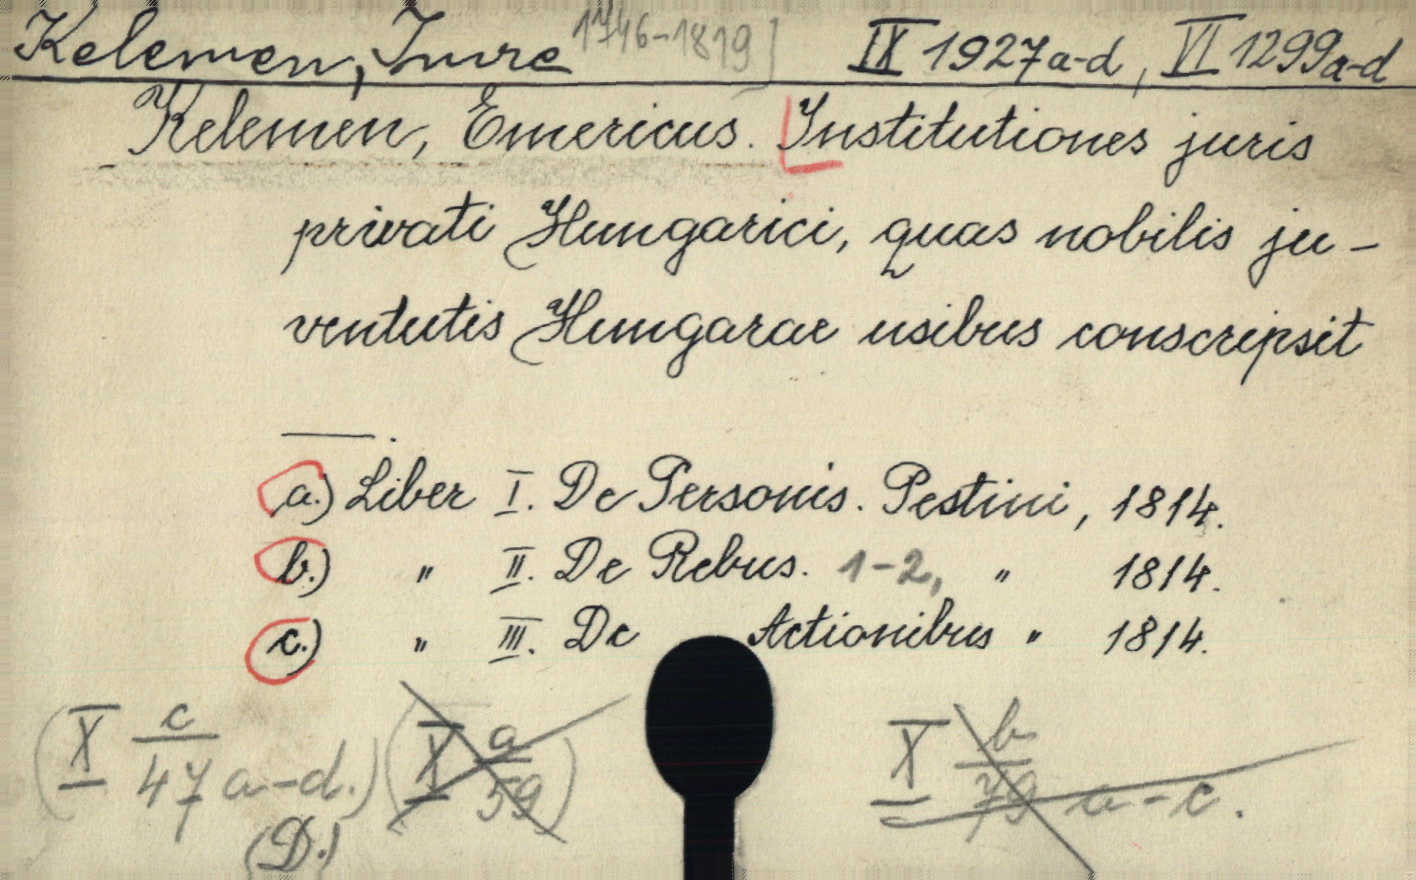 Kelemen, Imre 1746-1819] IX 1927a-d, VI 1299a-d
Kelemen, Emericus. Institutiones juris
privati Hungarici, quas nobilis ju-
ventutis Hungarae usibus conscripsit
a.) Liber I. De Personis. Pestini, 1814.
b.) " II. De Rebus. 1-2, " 1814.
c.) " III. De Actionibus " 1814.
(X c/47 a-d.) (X a/59) X b/79 a-c.
(D.)